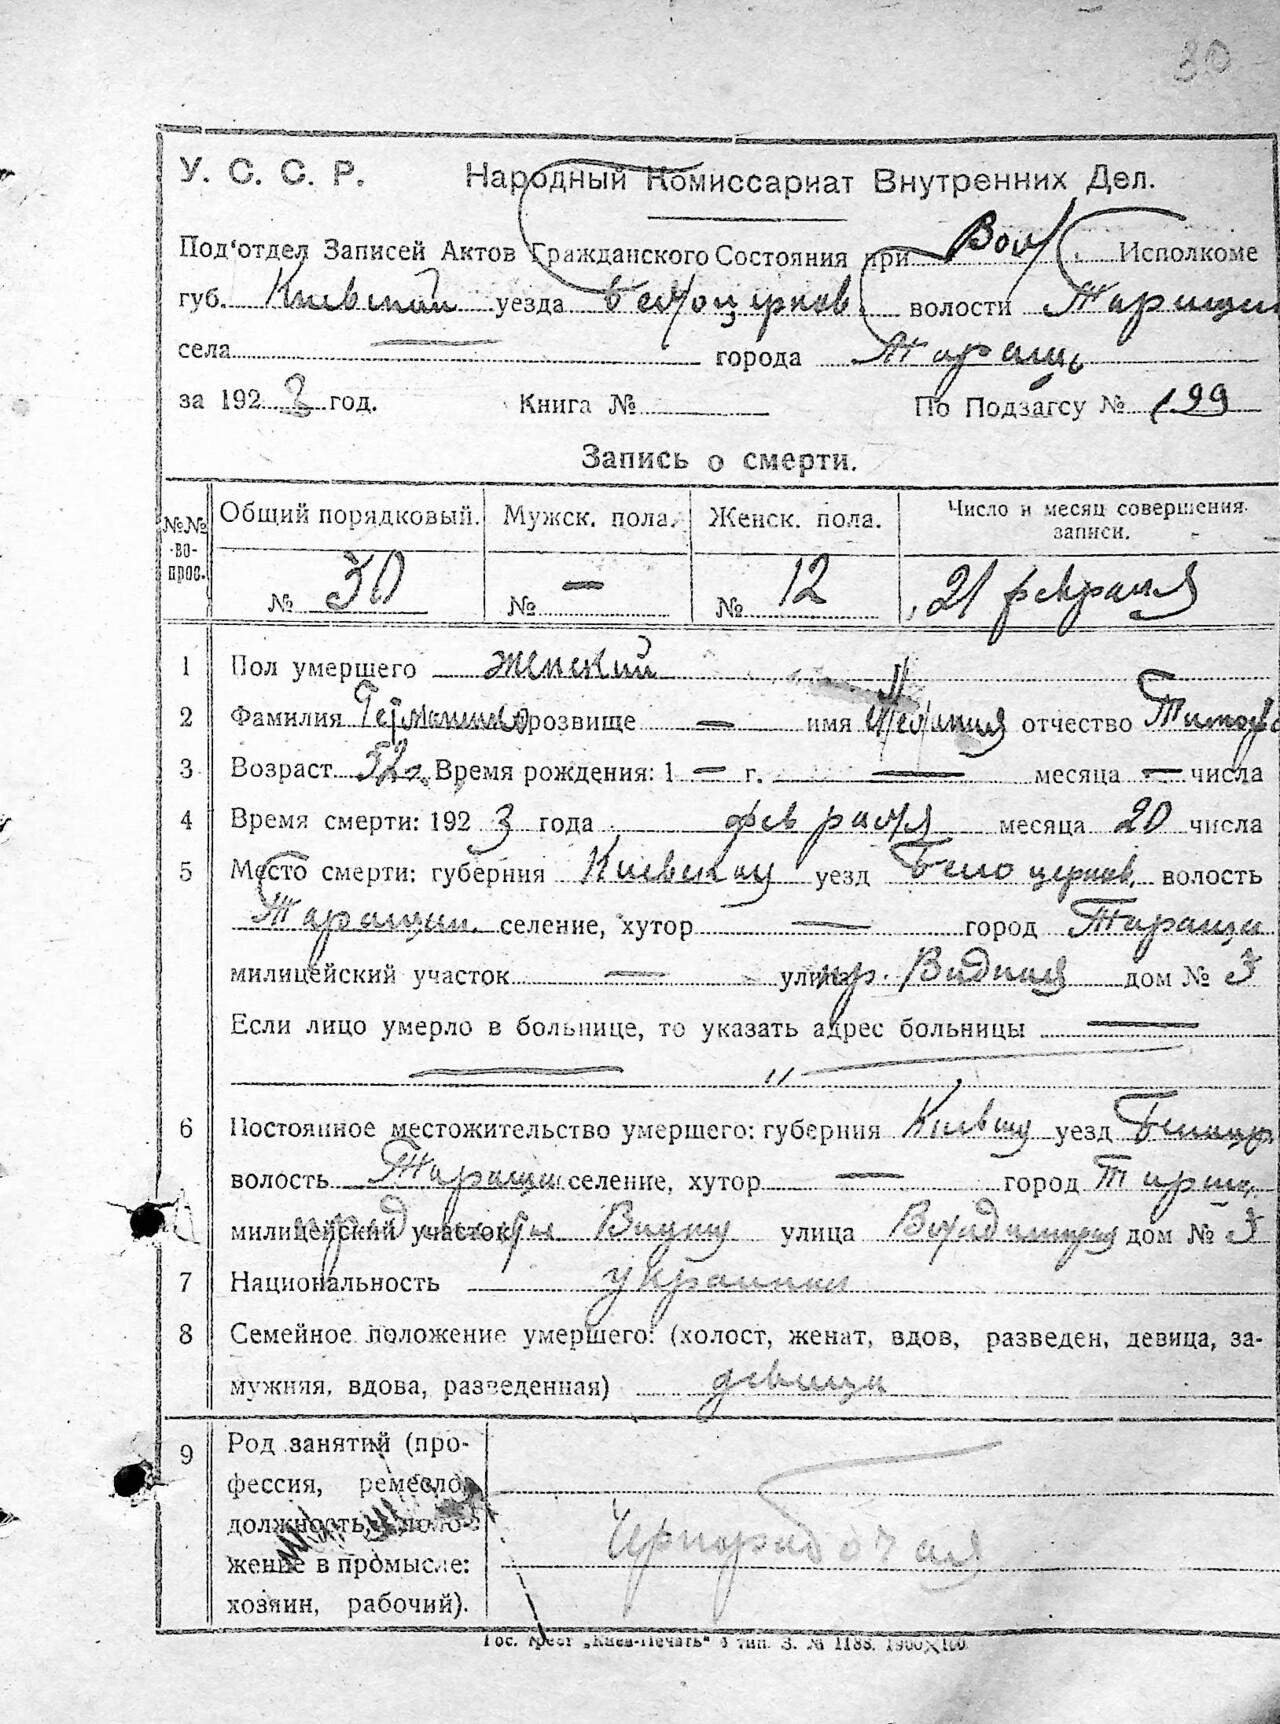 30
У. С. С. Р. Народный Комиссариат Внутренних Дел.
Под'отдел Записей Актов Гражданского Состояния при Вол. Исполкоме
губ. Киевской уезда Белоцерков. волости Таращан
села — города Таращ
за 1923 год. Книга № По Подзагсу № 199
Запись о смерти.
№№ вопрос. Общий порядковый. Мужск. пола. Женск. пола. Число и месяц совершения записи.
№ 30 № — № 12 21 февраля
1 Пол умершего женский
2 Фамилия прозвище — имя отчество
3 Возраст 52 Время рождения: 1 — г. — месяца — числа
4 Время смерти: 1923 года февраля месяца 20 числа
5 Место смерти: губерния Киевская уезд Белоцерков. волость
Таращан. селение, хутор — город Тараща
милицейский участок — улица дом № 3
Если лицо умерло в больнице, то указать адрес больницы —
— " —
6 Постоянное местожительство умершего: губерния уезд Белоцер
волость Таращан селение, хутор — город Таращ
милицейский участок улица дом № 3
7 Национальность украинка
8 Семейное положение умершего: (холост, женат, вдов, разведен, девица, за-
мужняя, вдова, разведенная) девица
9 Род занятий (про-
фессия, ремесло,
должность, поло-
жение в промысле:
хозяин, рабочий).
Чернорабочая
Гос. трест „Киев-Печать" 4 тип. З. № 1188. 1900×100.